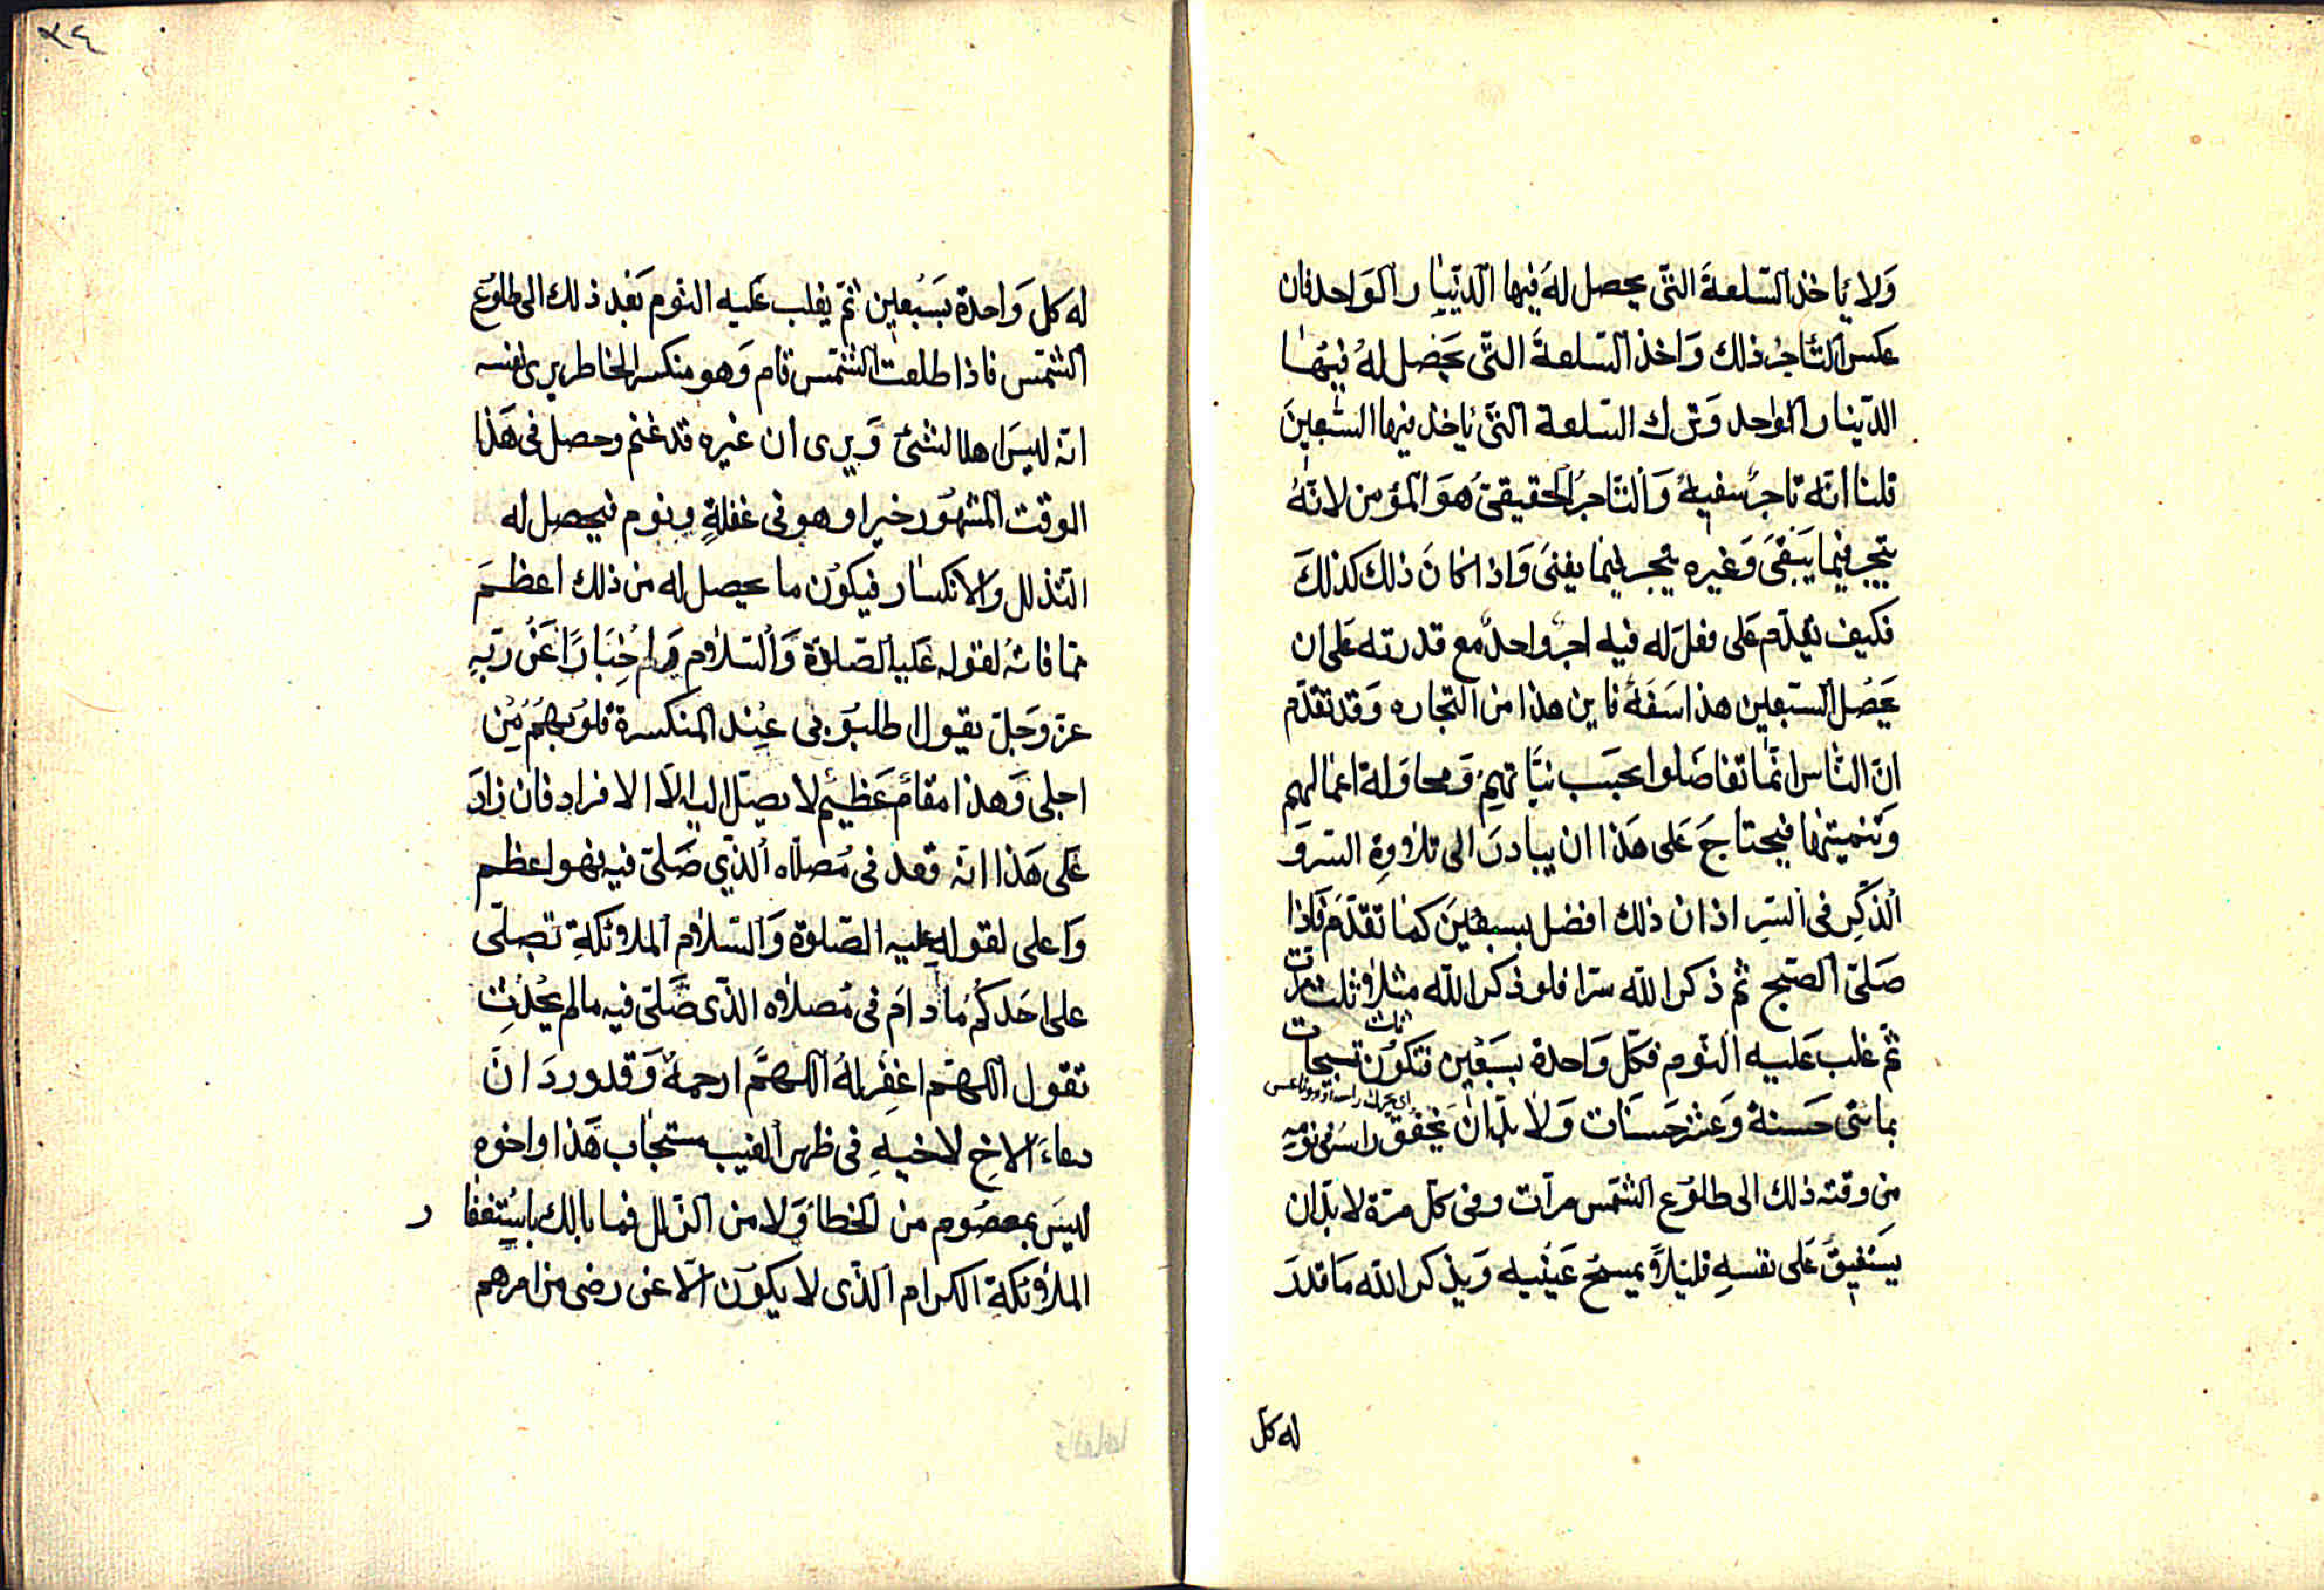 وَلا ياخذ السّلعةَ التّى يحصل لهَ فيها الدّينار الوَاحد فان
عكس التّاجرُ ذلك وَاخذ السّلعةَ التّى يَحْصل لهُ فيهَا
الدّينار الواحد وَترك السّلعة التّى ياخذ فيها السَّبعينَ
قلنا انّه تاجرٌ سفيهٌ وَالتّاجرُ الحقيقىّ هُوَ المؤمن لانّهُ
يتجر فيما يَبْقىَ وَغيره يتجر فيما يفنىَ وَاذا كانَ ذلكَ كذلكَ
فكيف يقدّم عَلى فعل له فيه اجرٌ واحدٌ مع قدرته عَلى ان
يَحصُل السّبعين هذا سَفَهٌ فاين هذا من التجاره وَقد تقدّم
انّ النّاس انّما تفاضَلوا بحسَب نيّاتهِم وَمحاوَلة اعمالهم
وَتنميتها فيحتاجَ عَلى هَذا ان يبادرَ الى تلاوةِ السّر وَ
الذّكِر فى السّرِ اذ ان ذلك افضل بسبعينَ كما تقدّمَ فاذا
صَلىّ الصّبح ثم ذكر الله سرّا فلو ذكر الله مثلاً ثلث مرّات
ثمّ غلب عَليه النّوم فكلّ وَاحدة بسَبْعين فتكوُن تسبيحات
ثلث
بمائتى حَسنة وَعشر حَسَنات وَلا بدّ ان يَخفق راسَه فى نومِه
اى يحرك راسه وهو ناعس
مِن وقته ذلك الى طلوُع الشّمس مرّات وفى كلّ مرّة لا بدّ ان
يَسْتفيقَ عَلى نفسهِ قليلاً وَيمسحَ عَيْنيه وَيذكر الله مَا قدرَ
له كل
٢٤
له كلّ وَاحدة بسَبْعين ثمّ يغلب عَليه النّوم بَعْد ذلك الى طلوُع
الشّمس فاذا طلعت الشّمس قام وَهو منكسر الخاطر يرى نفسه
انّه ليسَ اهلا لشئ وَيرى ان غيره قد غنم وحصل فى هَذا
الوقت المشهوُد خيرا وهو فى غفلةٍ ونوم فيحصل له
التّذلل والانكسار فيكوُن ما يحصل له من ذلك اعظمَ
ممّا فاتهُ لقوله عَليه الصّلاة وَالسّلام اِخْبَارًا عَنْ ربّهِ
عزّ وَجَلّ يقول اطلبوُنى عِند المنكسرة قلوُبهُم مِن
اجلى وَهذا مقامٌ عَظيمٌ لا يصِل اليه الّا الافراد فان زادَ
عَلى هَذا انّه قعد فى مُصلّاه الّذي صَلىّ فيه فهو اعظم
وَاعلى لقولهِ عليه الصّلوة وَالسّلام الملائكة تصلّى
على احَدكُم مادامَ فى مُصلاه الذّى صَلىّ فيه مالم يُحْدِث
تقول اللهمّ اغفِر لهُ اللهمَّ ارحمهُ وَقد وردَ انّ
دعاءَ الاخِ لاخيهِ فى ظهر الغيب مستجاب هَذا واخوه
ليسَ بمعصُوم من الخطا وَلا من الزّلل فما بالك باسْتِغفا ر
الملائكة الكرام الذّى لا يكوُن الّا عن رضى من امرهم